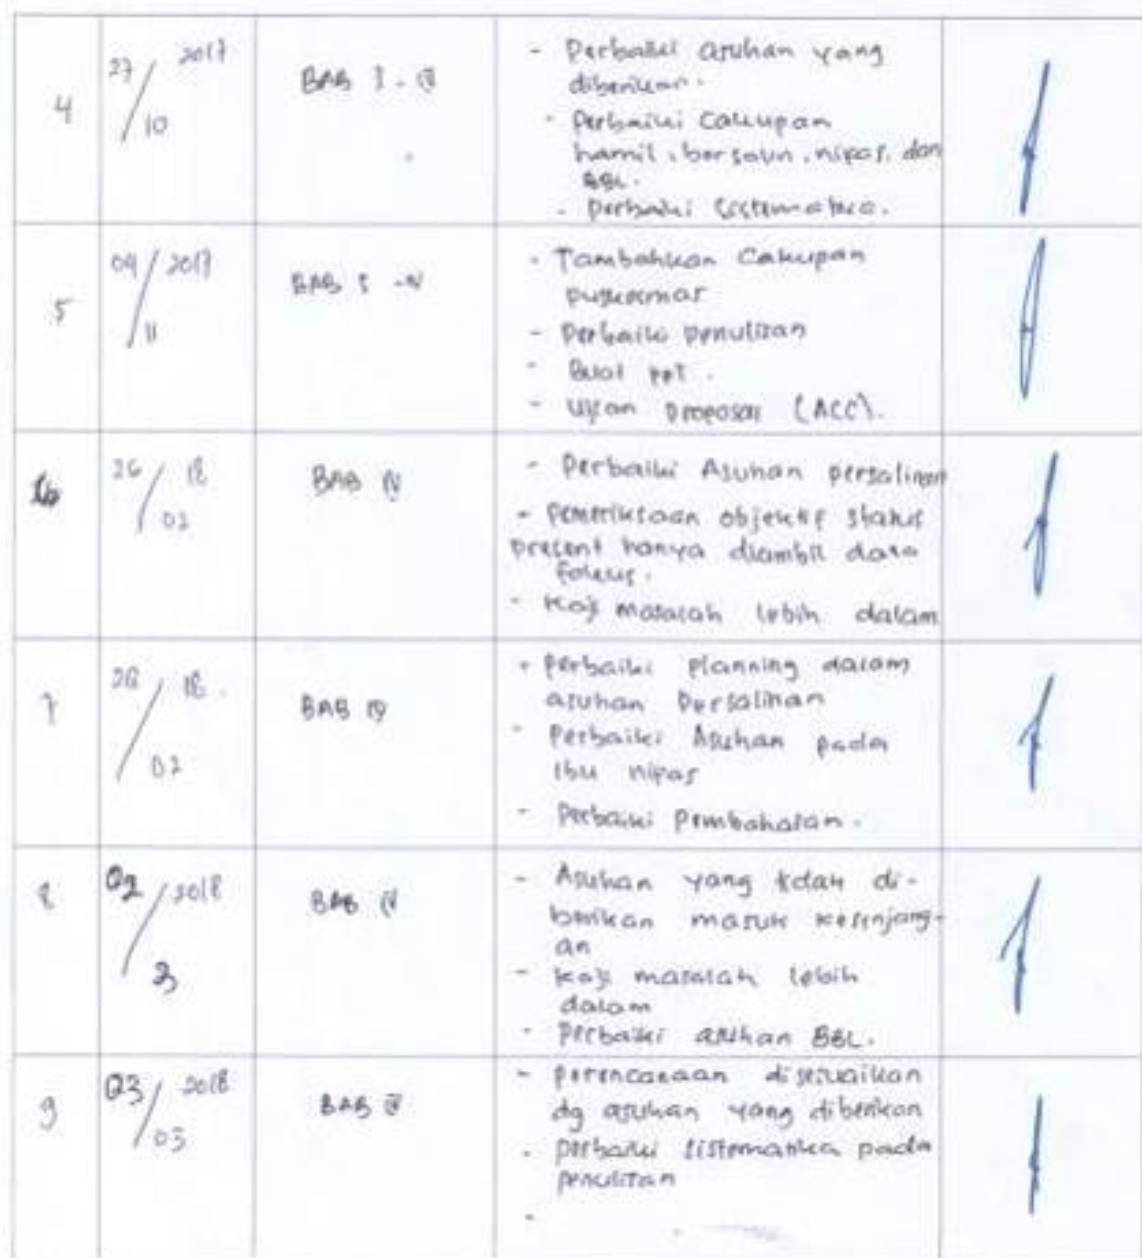 4
27/10 2017
BAB I - IV
- Perbaiki asuhan yang
diberikan.
- Perbaiki Cakupan
hamil, bersalin, nifas, dan
BBL.
- Perbaiki Sistematika.
5
04/11 2017
BAB I - IV
- Tambahkan Cakupan
puskesmas
- Perbaiki penulisan
- Buat PPT.
- Ujian proposal (ACC).
6
26/02 18
BAB IV
- Perbaiki Asuhan persalinan
- Pemeriksaan objektif status
present hanya diambil data
fokus.
- Kaji masalah lebih dalam
7
28/02 18.
BAB IV
- Perbaiki planning dalam
asuhan Persalinan
- Perbaiki Asuhan pada
Ibu nifas
- Perbaiki Pembahasan.
8
02/3 2018
BAB IV
- Asuhan yang tdak di-
berikan masuk kesenjang-
an
- Kaji masalah lebih
dalam
- Perbaiki asuhan BBL.
9
03/03 2018
BAB IV
- Perencanaan disesuaikan
dg asuhan yang diberikan
- perbaiki sistematika pada
penulisan
-